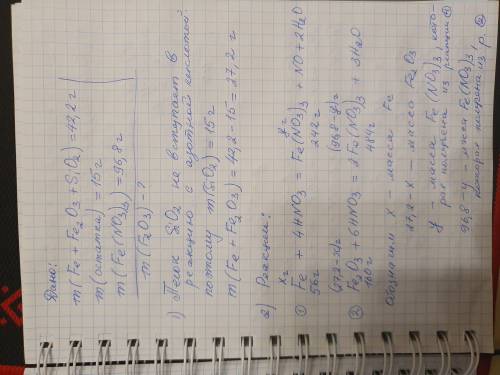 Дано:
m(Fe + Fe2O3 + SiO2) = 42,2 г
m(остатка) = 15 г
m(Fe(NO3)3) = 96,8 г
m(Fe2O3) - ?
1) Песок SiO2 не вступает в
реакцию с азотной кислотой.
поэтому m(SiO2) = 15 г
m(Fe + Fe2O3) = 42,2 - 15 = 27,2 г
2) Реакции:
x г y г
① Fe + 4HNO3 = Fe(NO3)3 + NO + 2H2O
56 г 242 г
(27,2-x) г (96,8-y) г
② Fe2O3 + 6HNO3 = 2Fe(NO3)3 + 3H2O
160 г 484 г
Обозначим x - масса Fe
27,2-x - масса Fe2O3
y - масса Fe(NO3)3, кото-
рая получена из реакции ①
96,8-y - масса Fe(NO3)3,
которая получена из р. ②